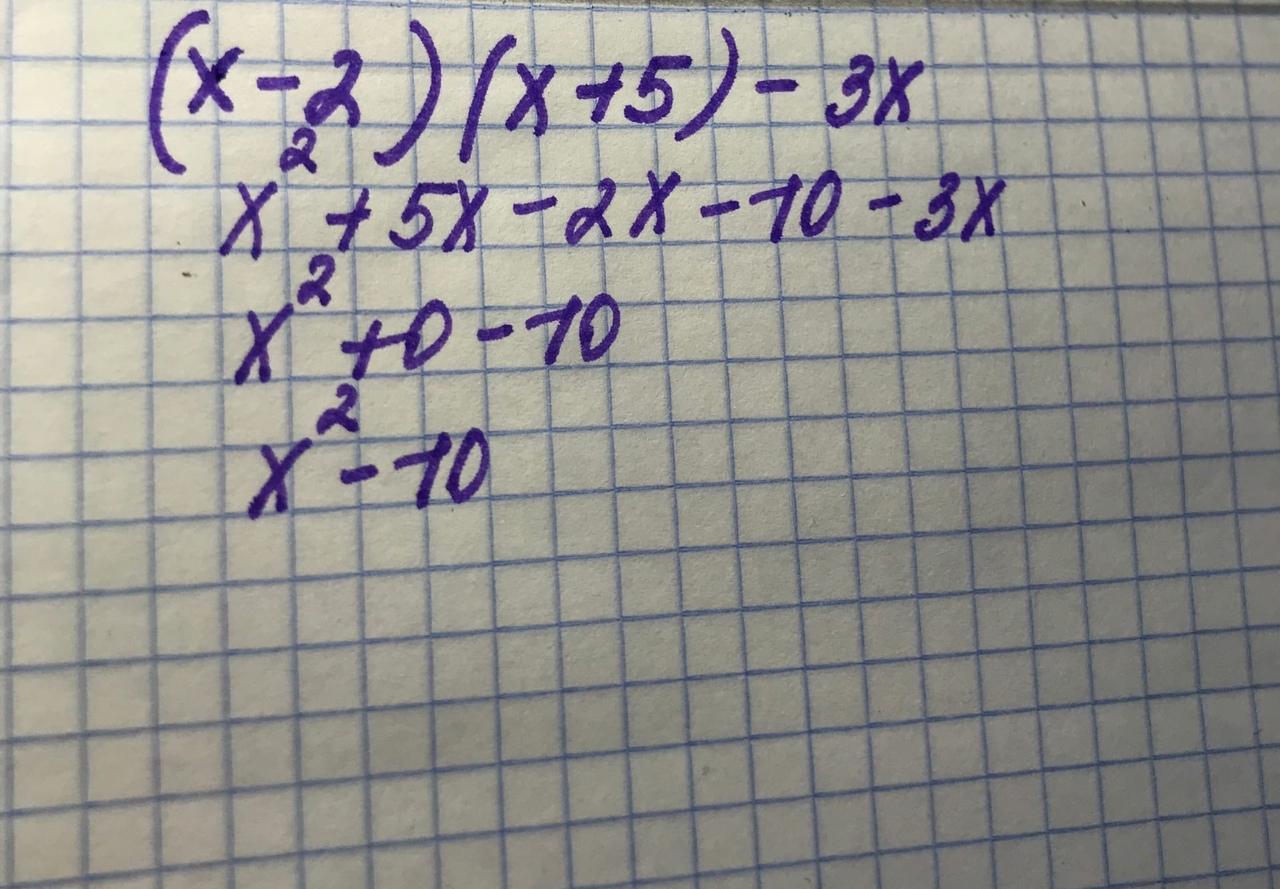 (x-2)(x+5)-3x
x²+5x-2x-10-3x
x²+0-10
x²-10